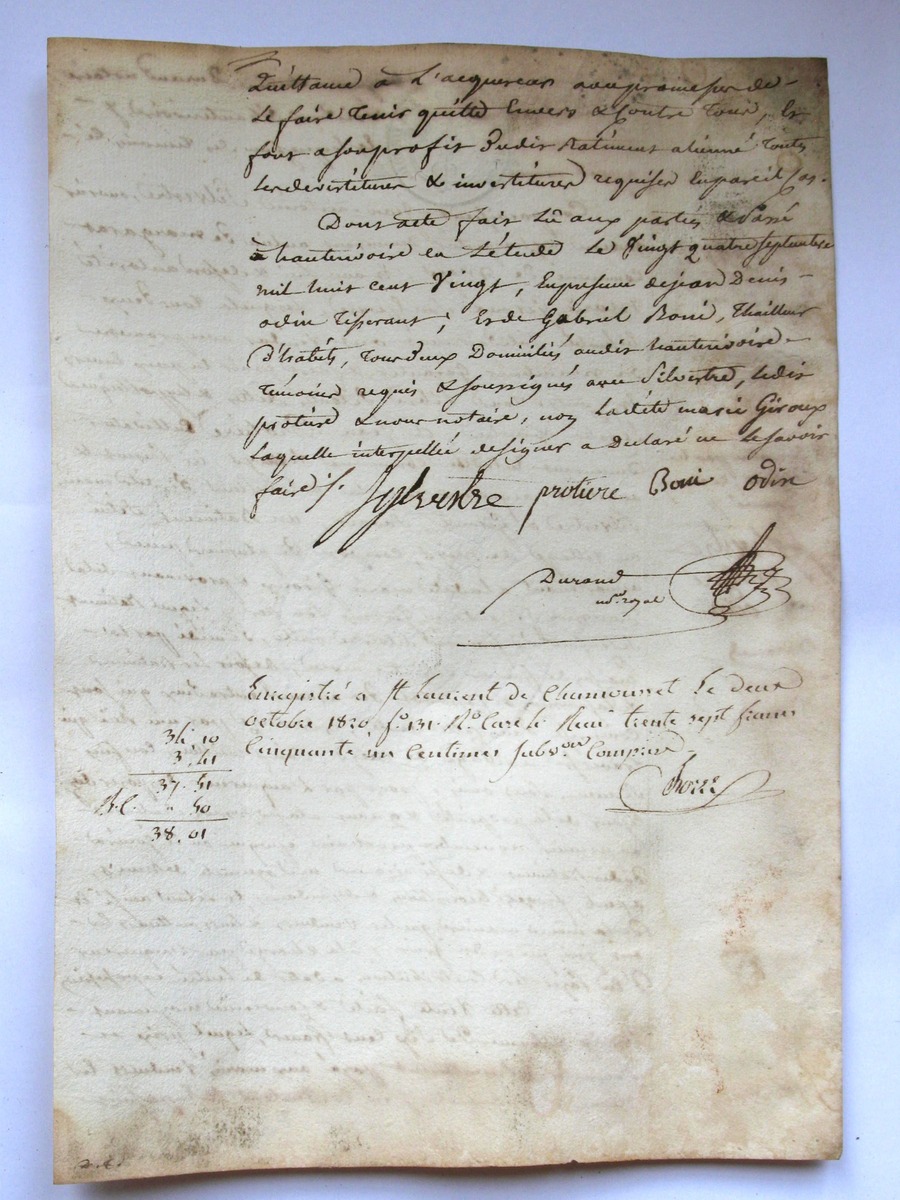 Quittance à L'acquereur avec promesse de
Le faire Tenir quitte Envers & Contre Tous, Et
font a son profit Dudit Batiment aliené Toutes
Les devestitures & investitures requises En pareil Cas.
Dont acte fait Lû aux parties & Passé
à hauterivoire en L'étude Le Vingt quatre septembre
mil huit cent Vingt, En presence de jean Denis
odin Tisserant, Et de Gabriel Boni, Thailleur
D'habits, Tous Deux Domiciliés audit hauterivoire
Témoins requis & soussignés avec Silvestre, Ledit
protiere & nous notaire, non Ladite marie Giroux
Laquelle interpellée de signer a Declaré ne Le savoir
faire ./.
Sylvestre protiere Boni odin
Durand
nore royal
Enregistré a St Laurent de Chamousset Le deux
octobre 1820 fo 131 Ro Care le Reçu trente sept francs
Cinquante un Centimes Subvon Comprise
34.10
3.41
37.51
B.C. " 50
38.01